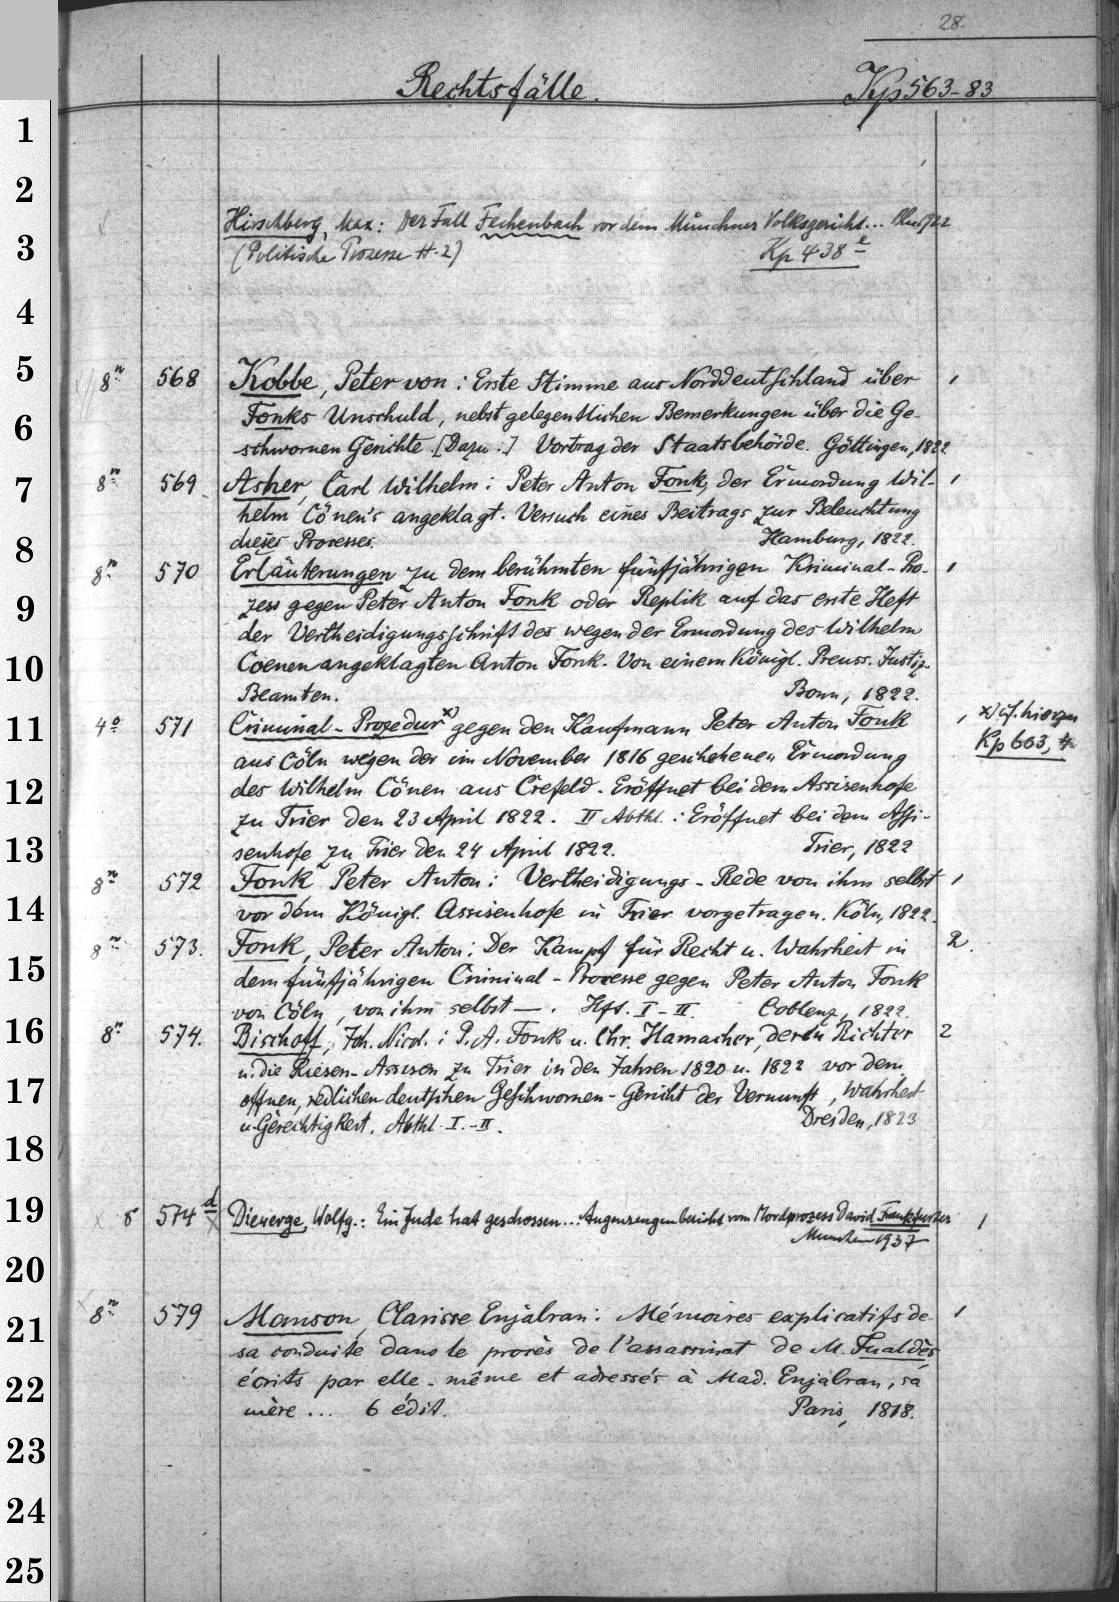 28.
Rechtsfälle. Kp 563-83
Hirschberg, Max: Der Fall Fechenbach vor dem Münchner Volksgericht... 1922
(Politische Prozesse H. 2) Kp 438 e
8n 568 Kobbe, Peter von: Erste Stimme aus Norddeutschland über 1
Fonks Unschuld, nebst gelegentlichen Bemerkungen über die Ge-
schwornen Gerichte. [Dazu:] Vortrag der Staatsbehörde. Göttingen, 1822
8n 569 Asher, Carl Wilhelm: Peter Anton Fonk, der Ermordung Wil- 1
helm Cönen's angeklagt. Versuch eines Beitrags zur Beleuchtung
dieses Prozesses. Hamburg, 1822.
8n 570 Erläuterungen zu dem berühmten fünfjährigen Kriminal-Pro- 1
zess gegen Peter Anton Fonk oder Replik auf das erste Heft
der Vertheidigungsschrift des wegen der Ermordung des Wilhelm
Coenen angeklagten Anton Fonk. Von einem Königl. Preuss. Justiz-
Beamten. Bonn, 1822.
4o 571 Criminal-Prozedur x) gegen den Kaufmann Peter Anton Fonk 1 x) cf. hierzu
aus Cöln wegen der im November 1816 geschehenen Ermordung Kp 603, 4
des Wilhelm Cönen aus Crefeld. Eröffnet bei dem Assisenhofe
zu Trier den 23 April 1822. II Abthl.: Eröffnet bei dem Assi-
senhofe zu Trier den 24 April 1822. Trier, 1822
8n 572 Fonk Peter Anton: Vertheidigungs-Rede von ihm selbst 1
vor dem Königl. Assisenhofe in Trier vorgetragen. Köln, 1822.
8n 573. Fonk, Peter Anton: Der Kampf für Recht u. Wahrheit in 2.
dem fünfjährigen Criminal-Processe gegen Peter Anton Fonk
von Cöln, von ihm selbst —. Hft. I-II. Coblenz, 1822.
8n 574. Bischoff, Joh. Nicol.: P. A. Fonk u. Chr. Hamacher, deren Richter 2
u. die Riesen-Assisen zu Trier in den Jahren 1820 u. 1822 vor dem
offnen, redlichen deutschen Geschwornen-Gericht der Vernunft, Wahrheit
u. Gerechtigkeit. Abthl. I.-II. Dresden, 1823
8 574 d Diewerge, Wolfg.: Ein Jude hat geschossen... Augenzeugenbericht vom Mordprozess David Frankfurter 1
München 1937
8n 579 Manson, Clarisse Enjalran: Mémoires explicatifs de 1
sa conduite dans le procès de l'assassinat de M. Fualdès
écrits par elle-même et adressés à Mad. Enjalran, sa
mère ... 6 édit. Paris, 1818.
1
2
3
4
5
6
7
8
9
10
11
12
13
14
15
16
17
18
19
20
21
22
23
24
25